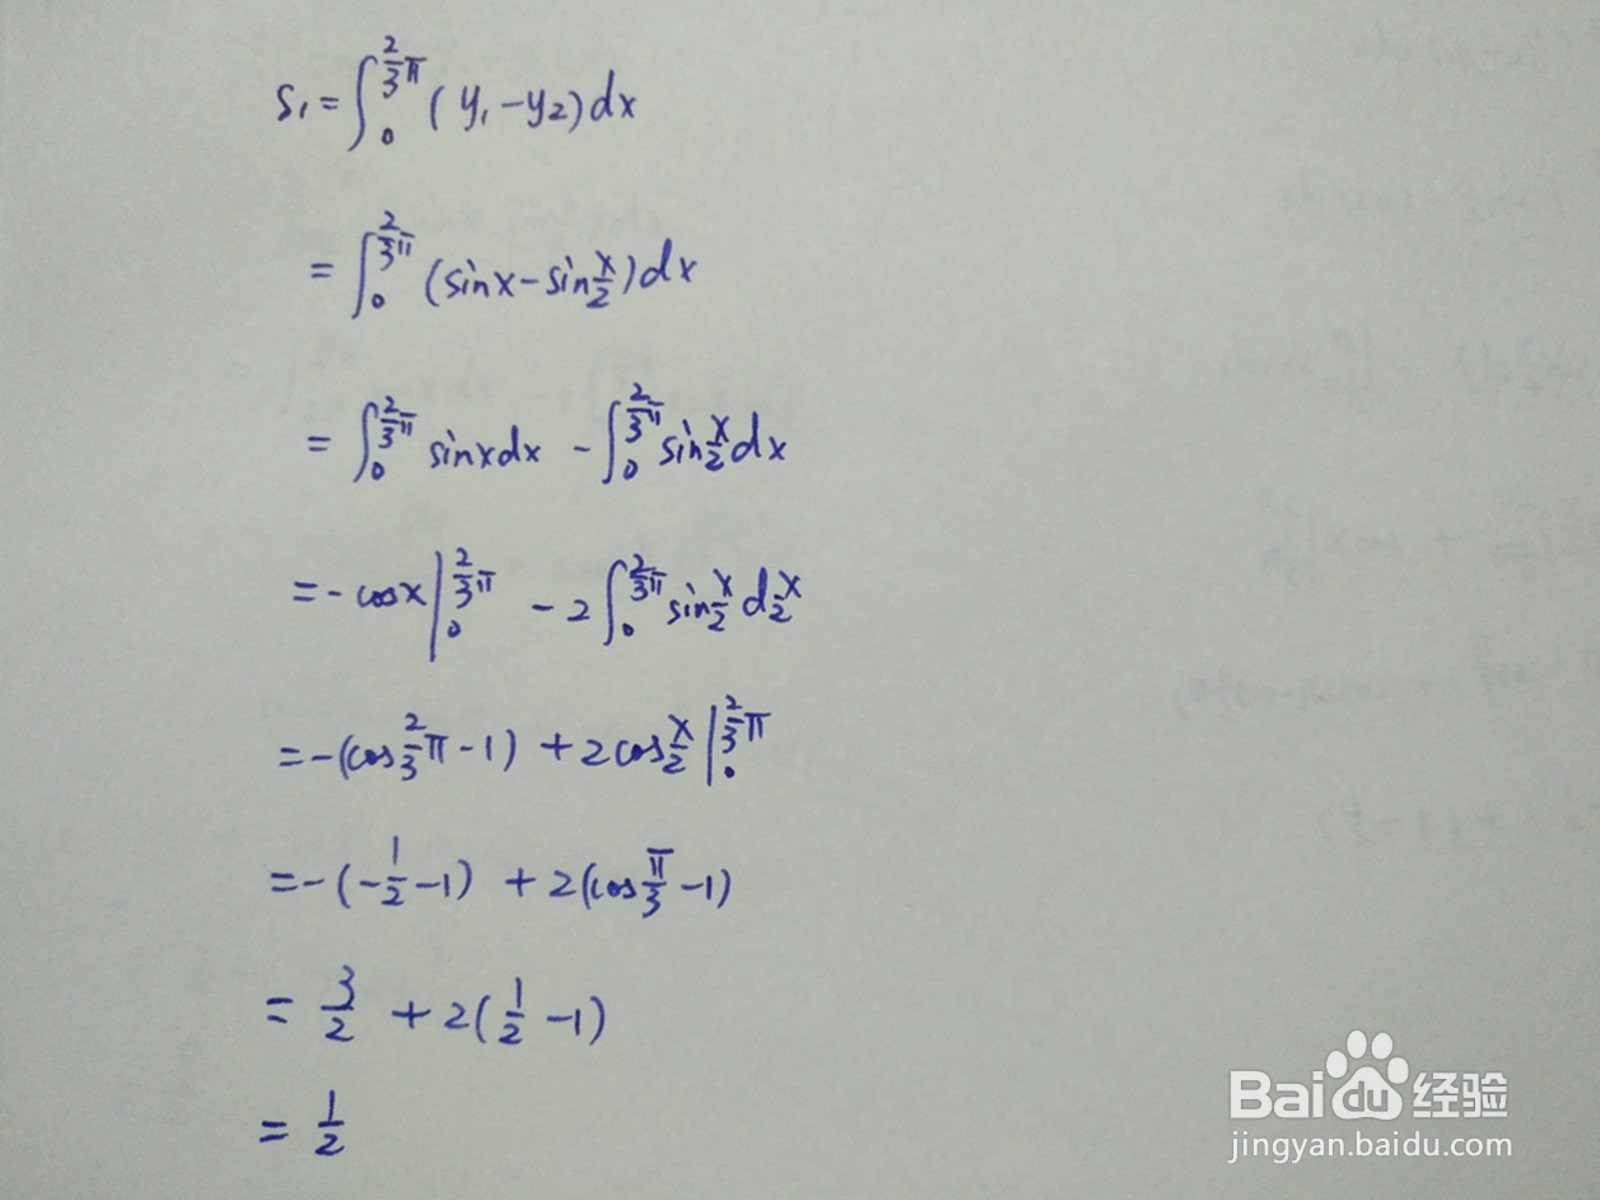 S₁ = ∫₀^{2/3 π} (y₁ - y₂) dx
= ∫₀^{2/3 π} (sinx - sin x/2) dx
= ∫₀^{2/3 π} sinxdx - ∫₀^{2/3 π} sin x/2 dx
= - cosx |₀^{2/3 π} - 2 ∫₀^{2/3 π} sin x/2 d x/2
= - (cos 2/3 π - 1) + 2cos x/2 |₀^{2/3 π}
= - (- 1/2 - 1) + 2(cos π/3 - 1)
= 3/2 + 2(1/2 - 1)
= 1/2
Baidu经验
jingyan.baidu.com